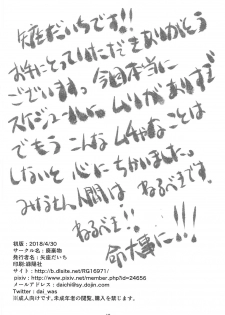 矢座だいちです!!
お手にとっていただきありがとう
ございます。今回本当に
スケジュールに。ムリがありすぎ
でもうこんなムチャなことは
しないと心にちかいました。
みなさん人間はねるべきです。
ねるべき!!
命大事に!!
初版:2018/4/30
サークル名:廃棄物
発行者名:矢座だいち
印刷:緑陽社
サイト:http://b.dlsite.net/RG16971/
pixiv:http://www.pixiv.net/member.php?id=24656
メールアドレス:daichi@sy.dojin.com
Twitter:dai_was
※成人向けです、未成年者の閲覧、購入を禁じます。